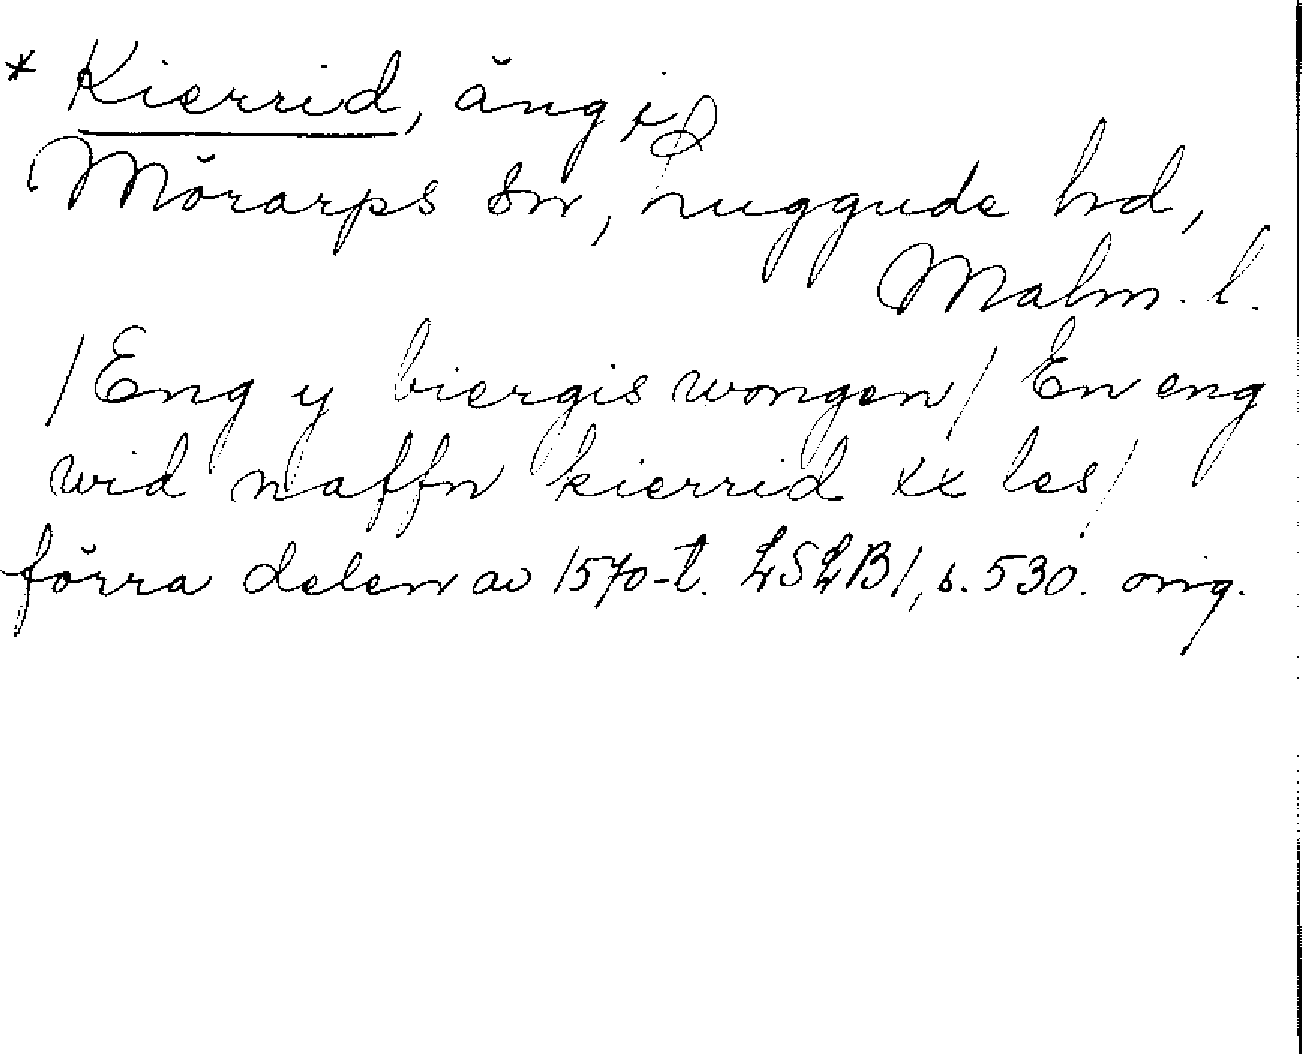 * Kierrid, äng i
Mörarps sn, Luggude hd,
Malm. l.
/Eng y biergis wongen/ En eng
wid naffn kierrid xx les/
förra delen av 1570-t. LSLB 1, s. 530. orig.